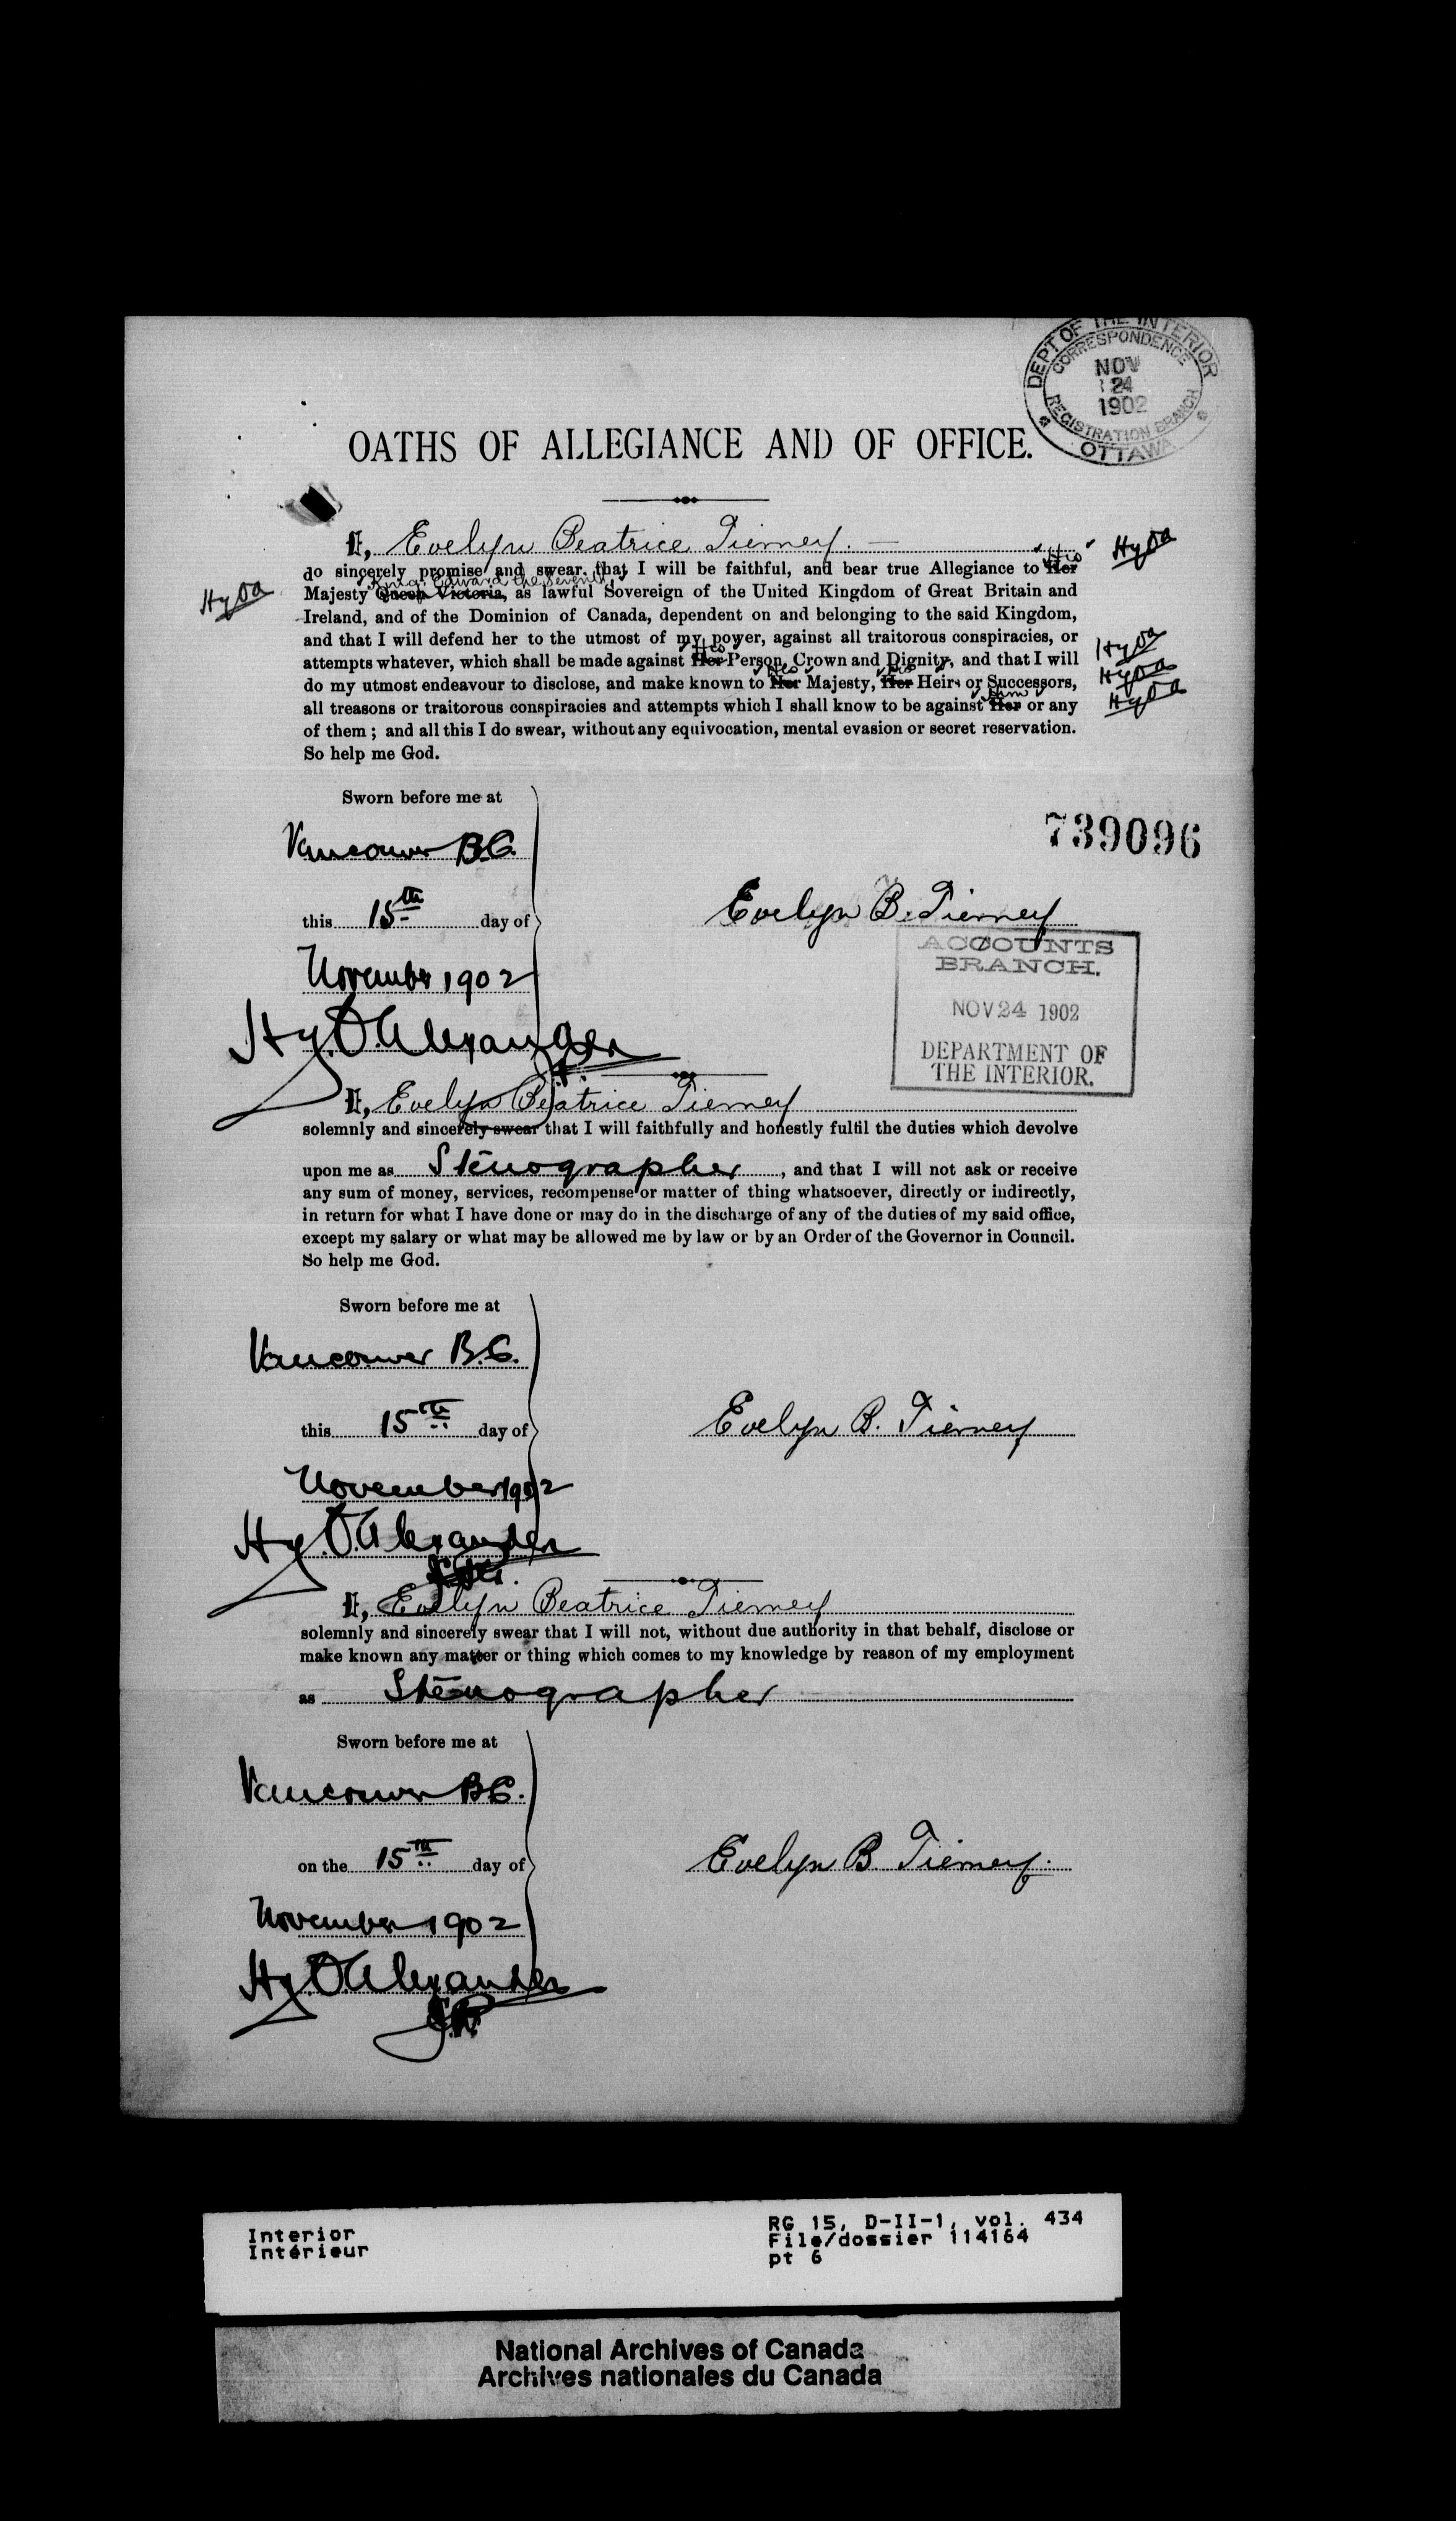 DEPT OF THE INTERIOR
CORRESPONDENCE
NOV
24
1902
REGISTRATION BRANCH
OTTAWA
OATHS OF ALLEGIANCE AND OF OFFICE.
I, Evelyn Beatrice Tierney.
His HyOA
do sincerely promise and swear that I will be faithful, and bear true Allegiance to Her
King Edward the Seventh
HyOA Majesty Queen Victoria, as lawful Sovereign of the United Kingdom of Great Britain and
Ireland, and of the Dominion of Canada, dependent on and belonging to the said Kingdom,
and that I will defend her to the utmost of my power, against all traitorous conspiracies, or
His HyOA
attempts whatever, which shall be made against Her Person, Crown and Dignity, and that I will
His His HyOA
do my utmost endeavour to disclose, and make known to Her Majesty, Her Heirs or Successors,
Him HyOA
all treasons or traitorous conspiracies and attempts which I shall know to be against Her or any
of them ; and all this I do swear, without any equivocation, mental evasion or secret reservation.
So help me God.
Sworn before me at
739096
Vancouver B.C.
this 15th day of
Evelyn B. Tierney
November 1902
ACCOUNTS
BRANCH.
NOV 24 1902
DEPARTMENT OF
THE INTERIOR.
Hy. O. Alexander
I, Evelyn Beatrice Tierney
solemnly and sincerely swear that I will faithfully and honestly fulfil the duties which devolve
upon me as Stenographer, and that I will not ask or receive
any sum of money, services, recompense or matter of thing whatsoever, directly or indirectly,
in return for what I have done or may do in the discharge of any of the duties of my said office,
except my salary or what may be allowed me by law or by an Order of the Governor in Council.
So help me God.
Sworn before me at
Vancouver B.C.
this 15th day of
Evelyn B. Tierney
November 1902
Hy. O. Alexander
I, Evelyn Beatrice Tierney
solemnly and sincerely swear that I will not, without due authority in that behalf, disclose or
make known any matter or thing which comes to my knowledge by reason of my employment
as Stenographer
Sworn before me at
Vancouver B.C.
on the 15th day of
Evelyn B. Tierney.
November 1902
Hy. O. Alexander
Interior
Intérieur
RG 15, D-II-1, vol. 434
File/dossier 114164
pt 6
National Archives of Canada
Archives nationales du Canada